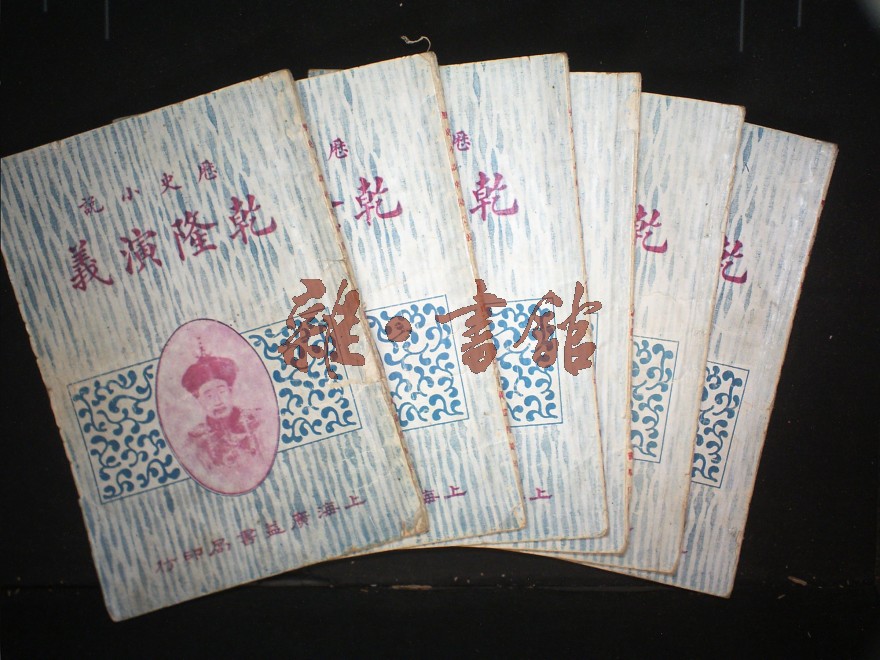 歷史小說
乾隆演義
上海廣益書局印行
歷
乾
上海
歷
乾
上
乾
乾
雜·書館